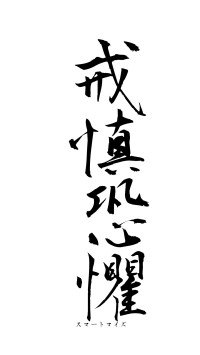 戒慎恐懼
スマートマイズ